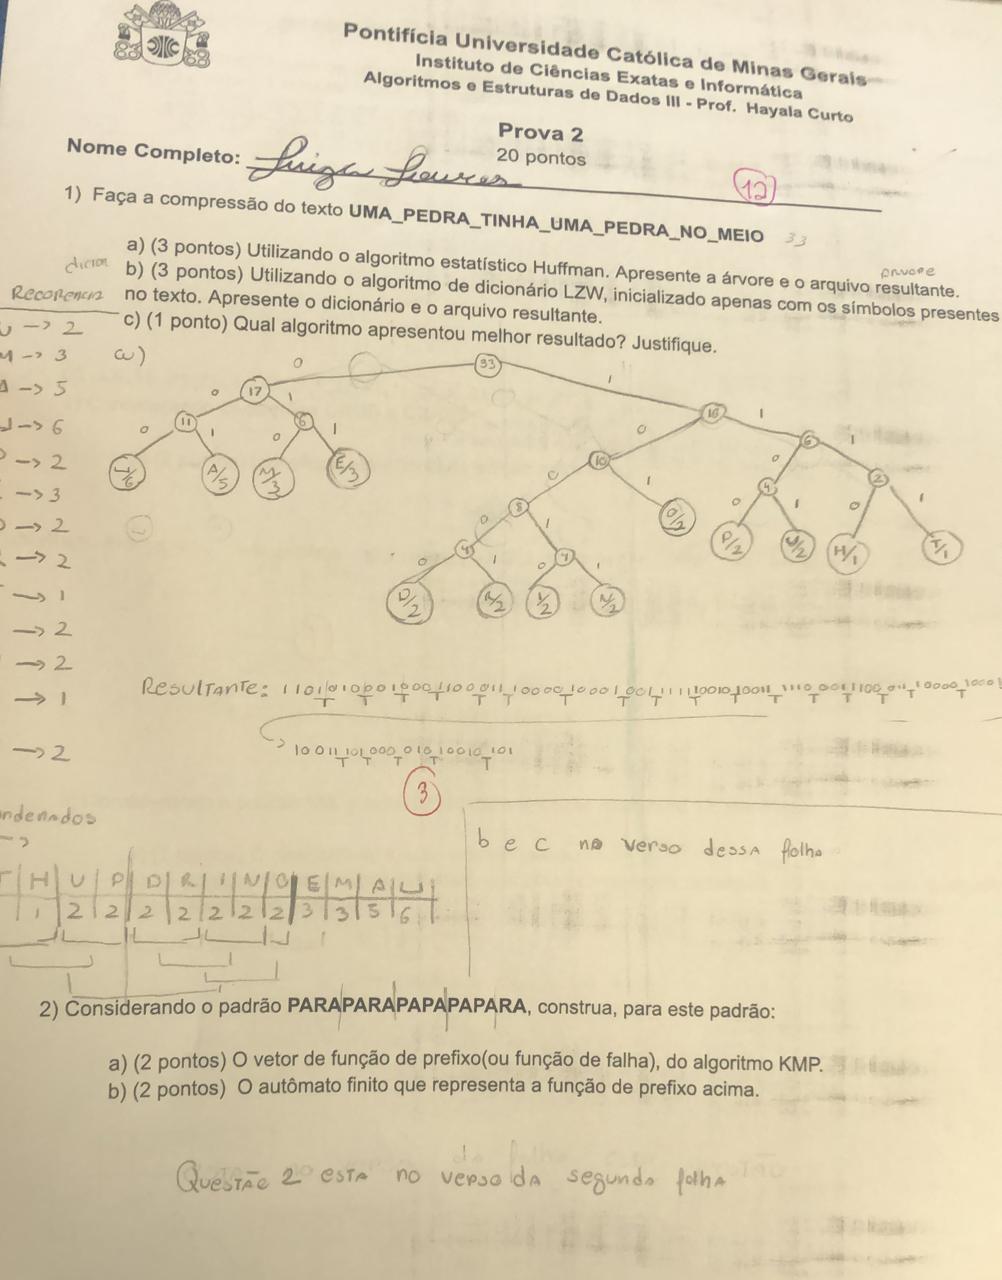 Pontifícia Universidade Católica de Minas Gerais
Instituto de Ciências Exatas e Informática
Algoritmos e Estruturas de Dados III - Prof. Hayala Curto
Prova 2
20 pontos
Nome Completo:
12
1) Faça a compressão do texto UMA_PEDRA_TINHA_UMA_PEDRA_NO_MEIO 33
a) (3 pontos) Utilizando o algoritmo estatístico Huffman. Apresente a árvore e o arquivo resultante.
b) (3 pontos) Utilizando o algoritmo de dicionário LZW, inicializado apenas com os símbolos presentes
no texto. Apresente o dicionário e o arquivo resultante.
c) (1 ponto) Qual algoritmo apresentou melhor resultado? Justifique.
Recorencia
U -> 2
M -> 3
A -> 5
-> 6
-> 2
-> 3
-> 2
-> 2
-> 1
-> 2
-> 2
-> 1
-> 2
a)
33
0 1
17 16
0 1 0 1
11 6 10 6
0 1 0 1 0 1 0 1
A/5 M/3 E/3 8 O/2 4 2
0 1 0 1 0 1
4 4 P/2 U/2 H/1 T/1
0 1 0 1
D/2 R/2 I/2 N/2
Resultante:
3
b e c no verso dessa folha
H U P D R I N O E M A
1 2 2 2 2 2 2 2 3 3 5 6
2) Considerando o padrão PARAPARAPAPAPAPARA, construa, para este padrão:
a) (2 pontos) O vetor de função de prefixo(ou função de falha), do algoritmo KMP.
b) (2 pontos) O autômato finito que representa a função de prefixo acima.
Questão 2 esta no verso da segunda folha